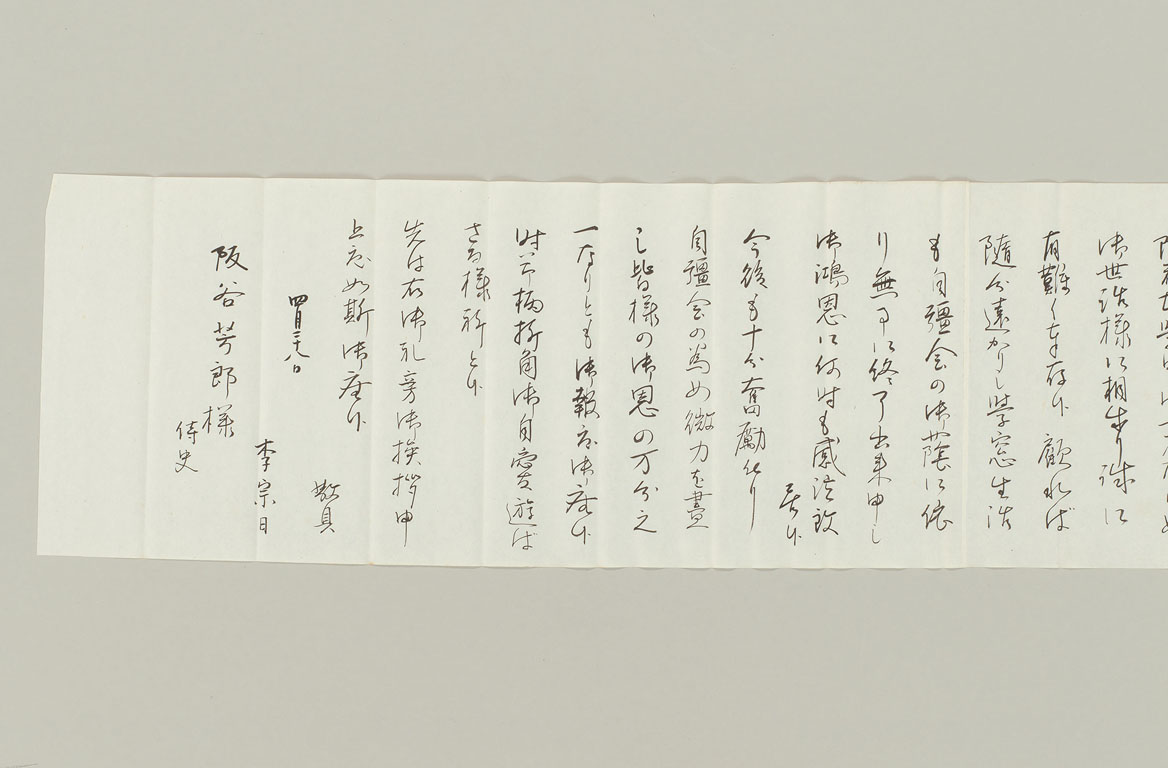 御世話様に相成り誠に
有難く奉存候 顧れば
随分遠かりし学窓生活
も自彊会の御蔭に依
り無事に終了出来申し
御鴻恩に何時も感泣致
居候
今後も十分奮励仕り
自彊会の為め微力を盡
し皆様の御恩の万分之
一なりとも御報応御座候
時下柄折角御自愛遊ば
さる様祈上候
先は右御礼旁御挨拶申
上度如斯御座候
敬具
四月二十八日
李宗日
阪谷芳郎様
侍史